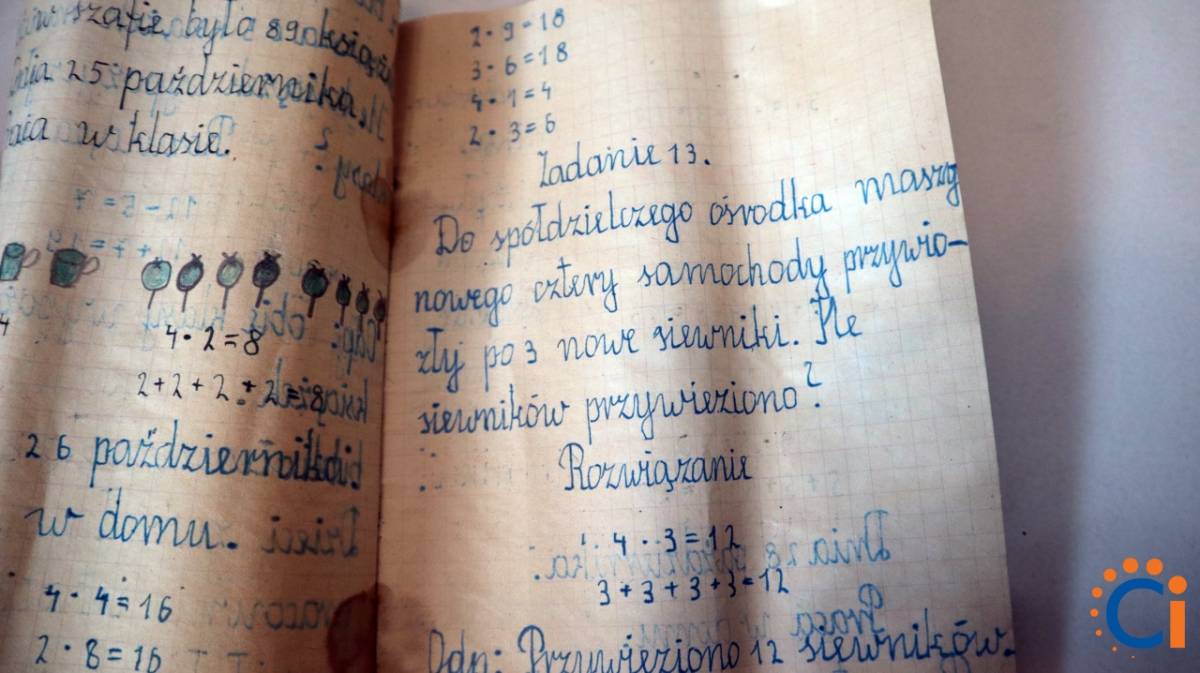 szafie była 89 książ
25 października
w klasie.
4 · 2 = 8
2 + 2 + 2 + 2 = 8
26 października
w domu.
4 · 4 = 16
2 · 8 = 16
2 · 9 = 18
3 · 6 = 18
4 · 1 = 4
2 · 3 = 6
Zadanie 13.
Do spółdzielczego ośrodka maszy
nowego cztery samochody przywio-
zły po 3 nowe siewniki. Ile
siewników przywieziono?
Rozwiązanie
4 · 3 = 12
3 + 3 + 3 + 3 = 12
Odp: Przywieziono 12 siewników.
Ci